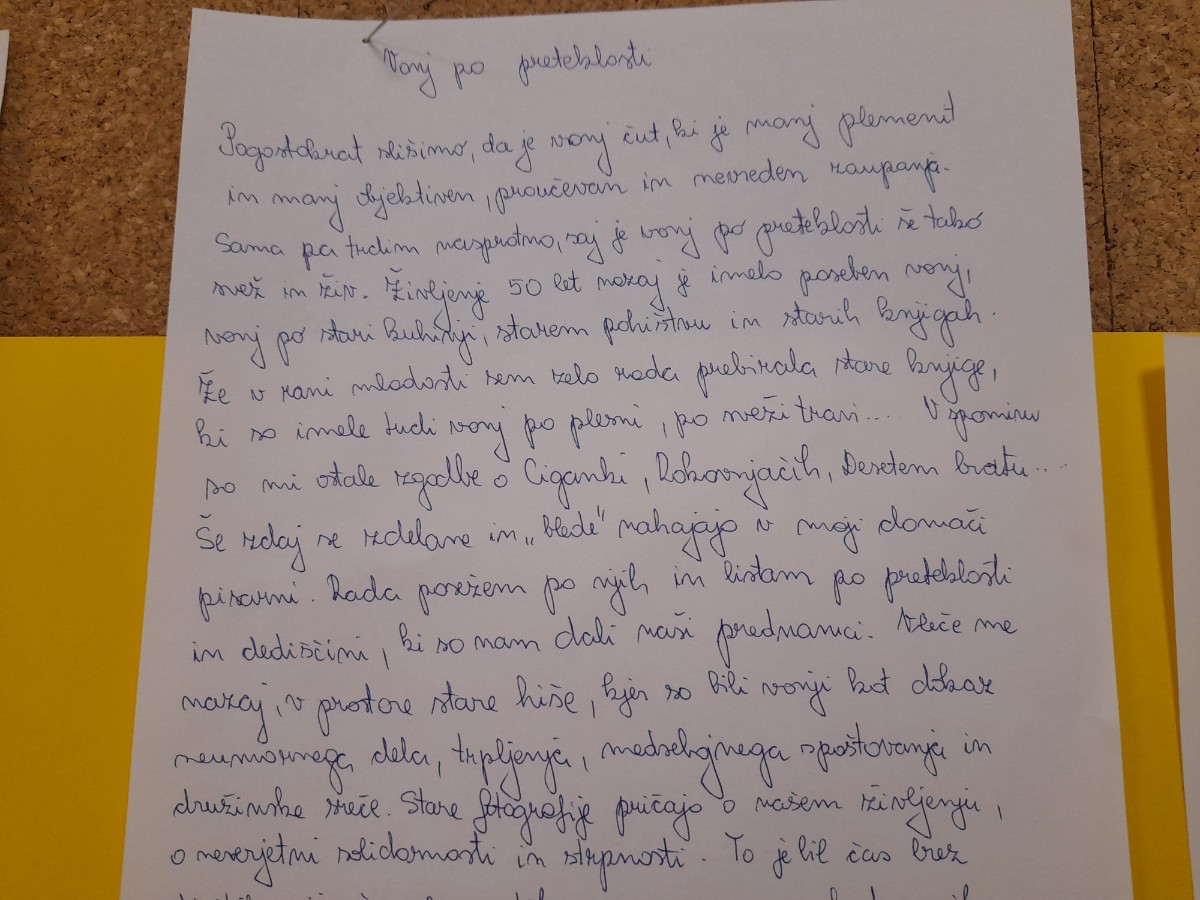 Vonj po preteklosti
Pogostokrat slišimo, da je vonj čut, ki je manj plemenit
in manj objektiven, proučevan in nevreden zaupanja.
Sama pa trdim nasprotno, saj je vonj po preteklosti še tako
svež in živ. Življenje 50 let nazaj je imelo poseben vonj,
vonj po stari kuhinji, starem pohištvu in starih knjigah.
Že v rani mladosti sem zelo rada prebirala stare knjige,
ki so imele tudi vonj po plesni, po sveži travi... V spominu
so mi ostale zgodbe o Ciganki, Rokovnjačih, Desetem bratu....
Še zdaj se zdelane in "blede" nahajajo v moji domači
pisarni. Rada posežem po njih in listam po preteklosti
in dediščini, ki so nam dali naši prednamci. Vleče me
nazaj, v prostore stare hiše, kjer so bili vonji kot dokaz
neumornega dela, trpljenja, medsebojnega spoštovanja in
družinske sreče. Stare fotografije pričajo o našem življenju,
o neverjetni solidarnosti in strpnosti. To je bil čas brez